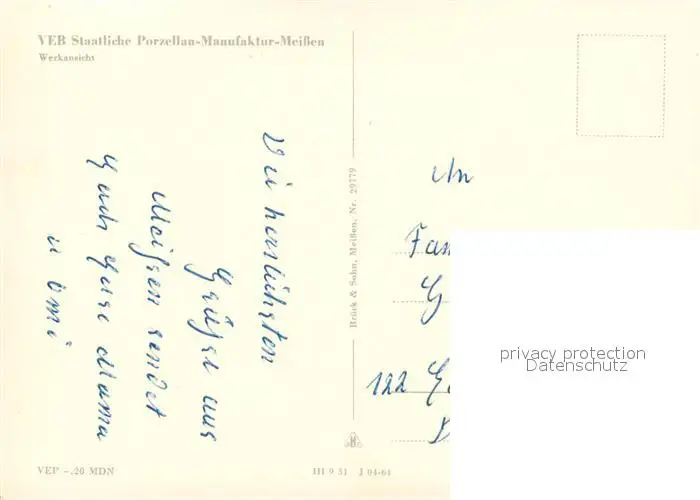 VEB Staatliche Porzellan-Manufaktur-Meißen
Werkansicht
Die herzlichsten
Grüße aus
Meißen sendet
Euch Eure Mama
u Omi
Brück & Sohn, Meißen, Nr. 29779
An
Fam
G
122
privacy protection
Datenschutz
VEP -.20 MDN
III 9 51 J 04-64